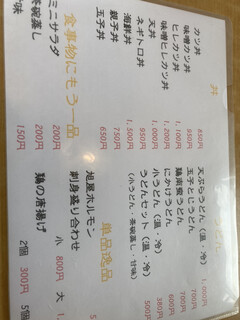 丼
カツ丼 850円
味噌カツ丼 950円
ヒレカツ丼 1,100円
味噌ヒレカツ丼 1,200円
天丼
ネギトロ丼 950円
海鮮丼 1,500円
親子丼 750円
玉子丼 650円
食事物にもう一品
ミニサラダ 200円
茶碗蒸し 200円
甘味 150円
うどん
天ぷらうどん(温・冷) 1,000円
玉子とじうどん 700円
鶏南蛮うどん
にかけうどん 600円
小うどん(温・冷) 380円
うどんセット(温・冷)
(小うどん・茶碗蒸し・甘味) 500円
単品逸品
旭屋ホルモン
刺身盛り合わせ 小 800円 大
鶏の唐揚げ 2個 300円 5個